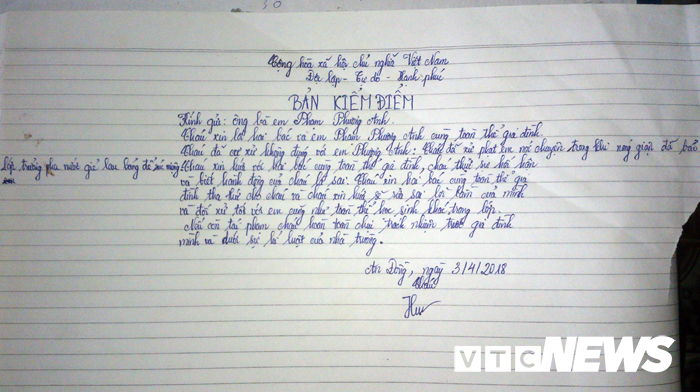 Cộng hòa xã hội chủ nghĩa Việt Nam
Độc lập - Tự do - Hạnh phúc
BẢN KIỂM ĐIỂM
Kính gửi: ông bà em Phạm Phương Anh.
Cháu xin lỗi hai bác và em Phạm Phương Anh cùng toàn thể gia đình.
Cháu đã cư xử không đúng với em Phương Anh: Cháu đã xử phạt em nói chuyện trong khi nóng giận đã bảo
lớp trưởng pha nước giẻ lau bảng để súc miệng. Cháu xin hứa với hai bác cùng toàn thể gia đình, cháu thực sự hối hận
và biết hành động của cháu là sai. Cháu xin hai bác cùng toàn thể gia
đình tha thứ cho cháu và cháu xin hứa sẽ sửa sai lỗi lầm của mình
và đối xử tốt với em cũng như toàn thể học sinh khác trong lớp.
Nếu còn tái phạm cháu hoàn toàn chịu trách nhiệm trước gia đình
mình và dưới sự kỉ luật của nhà trường.
An Đồng, ngày 3/4/2018
Cháu
VTC NEWS